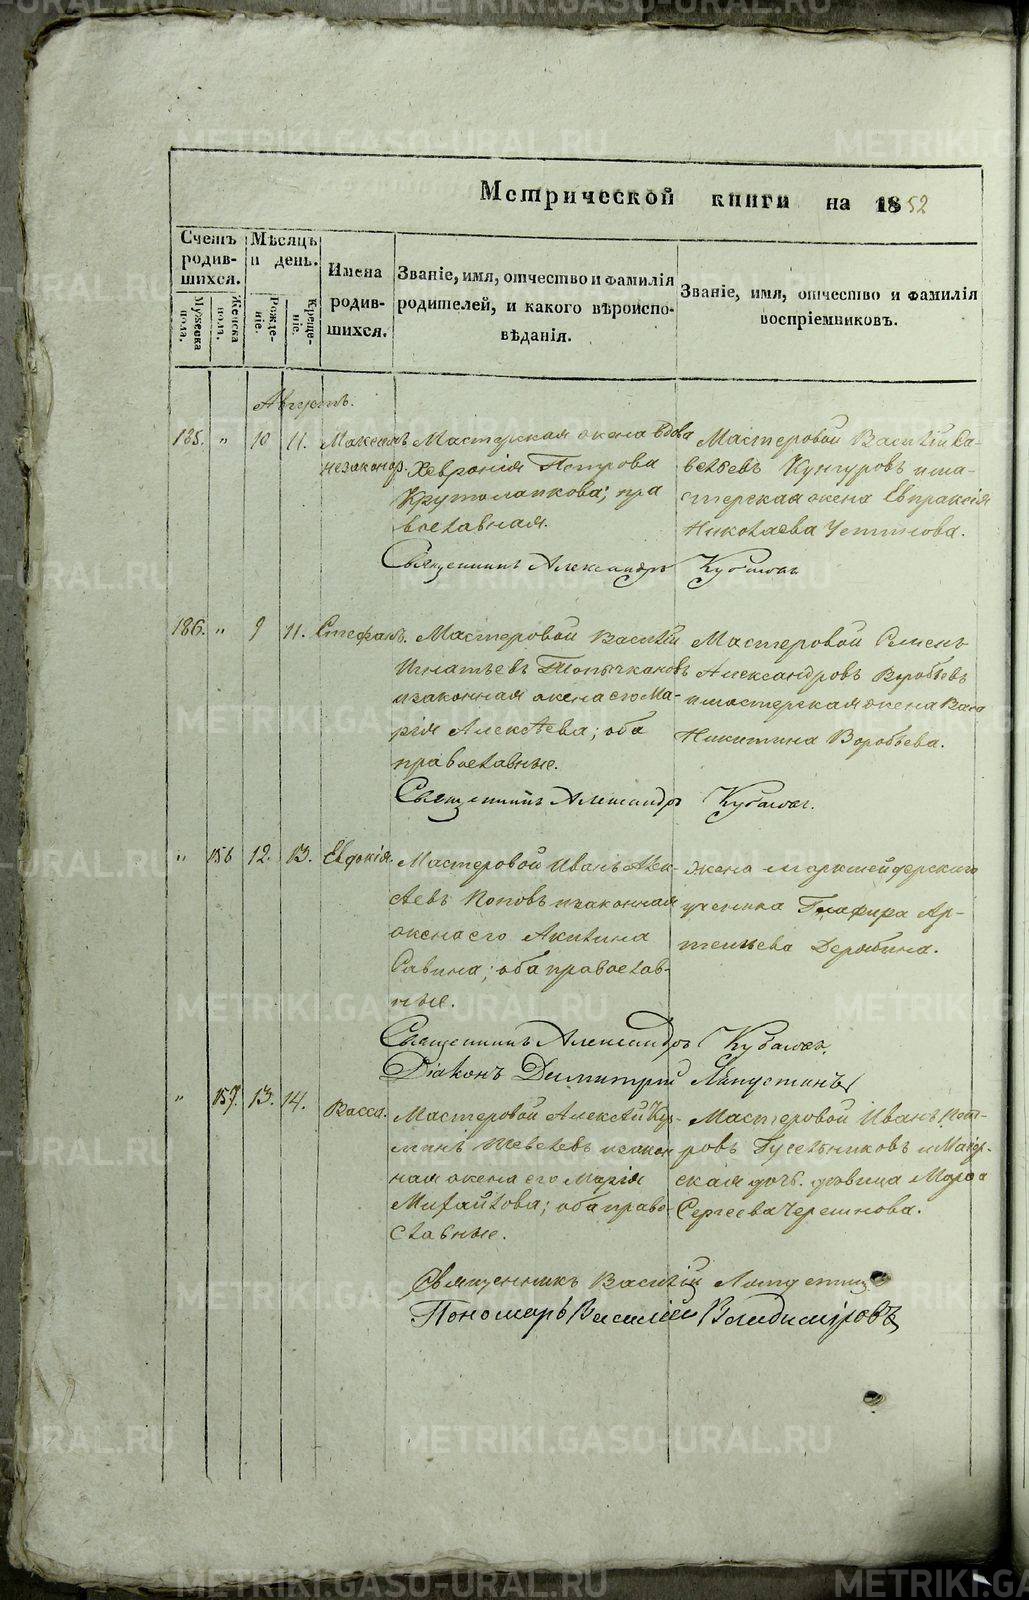 METRIKI.GASO-URAL.RU
Метрической книги на 1852
Счетъ родившихся.
Мѣсяцъ и день.
Имена родившихся.
Званіе, имя, отчество и фамилія родителей, и какого вѣроисповѣданія.
Званіе, имя, отчество и фамилія воспріемниковъ.
Мужеска пола.
Женска пола.
Рожденіе.
Крещеніе.
Августъ.
185. „ 10 11. Максимъ незаконор.
Мастерская жена вдова
Хевронія Петрова
Крутолапкова; пра
вославная.
Мастеровой Василій Са-
вельевъ Кунгуровъ и ма-
стерская жена Евпраксія
Николаева Устинова.
Священникъ Александръ
186. „ 9 11. Стефанъ.
Мастеровой Василій
Игнатьевъ Топычкановъ
и законная жена его Ма-
рія Алексѣева; оба
православные.
Мастеровой Семенъ
Александровъ Воробьевъ
и мастерская жена Васса
Никитина Воробьева.
Священникъ Александръ
„ 156 12. 13. Евдокія.
Мастеровой Иванъ
Поповъ и законная
жена его Акилина
Савина; оба православ-
ные.
Жена маркшейдерскаго
ученика Глафира Ар-
темьева Дерябина.
Священникъ Александръ
Діаконъ Димитрій
„ 157. 13. 14. Васса.
Мастеровой Алексѣй Куз-
минъ и закон
ная жена его Марія
Михайлова; оба право-
славные.
Мастеровой Иванъ Пет-
ровъ Гусельниковъ и Мастер-
ская дочь девица Марѳа
Сергеева Черепнова.
Священникъ Василій
Пономарь Василій Владиміровъ